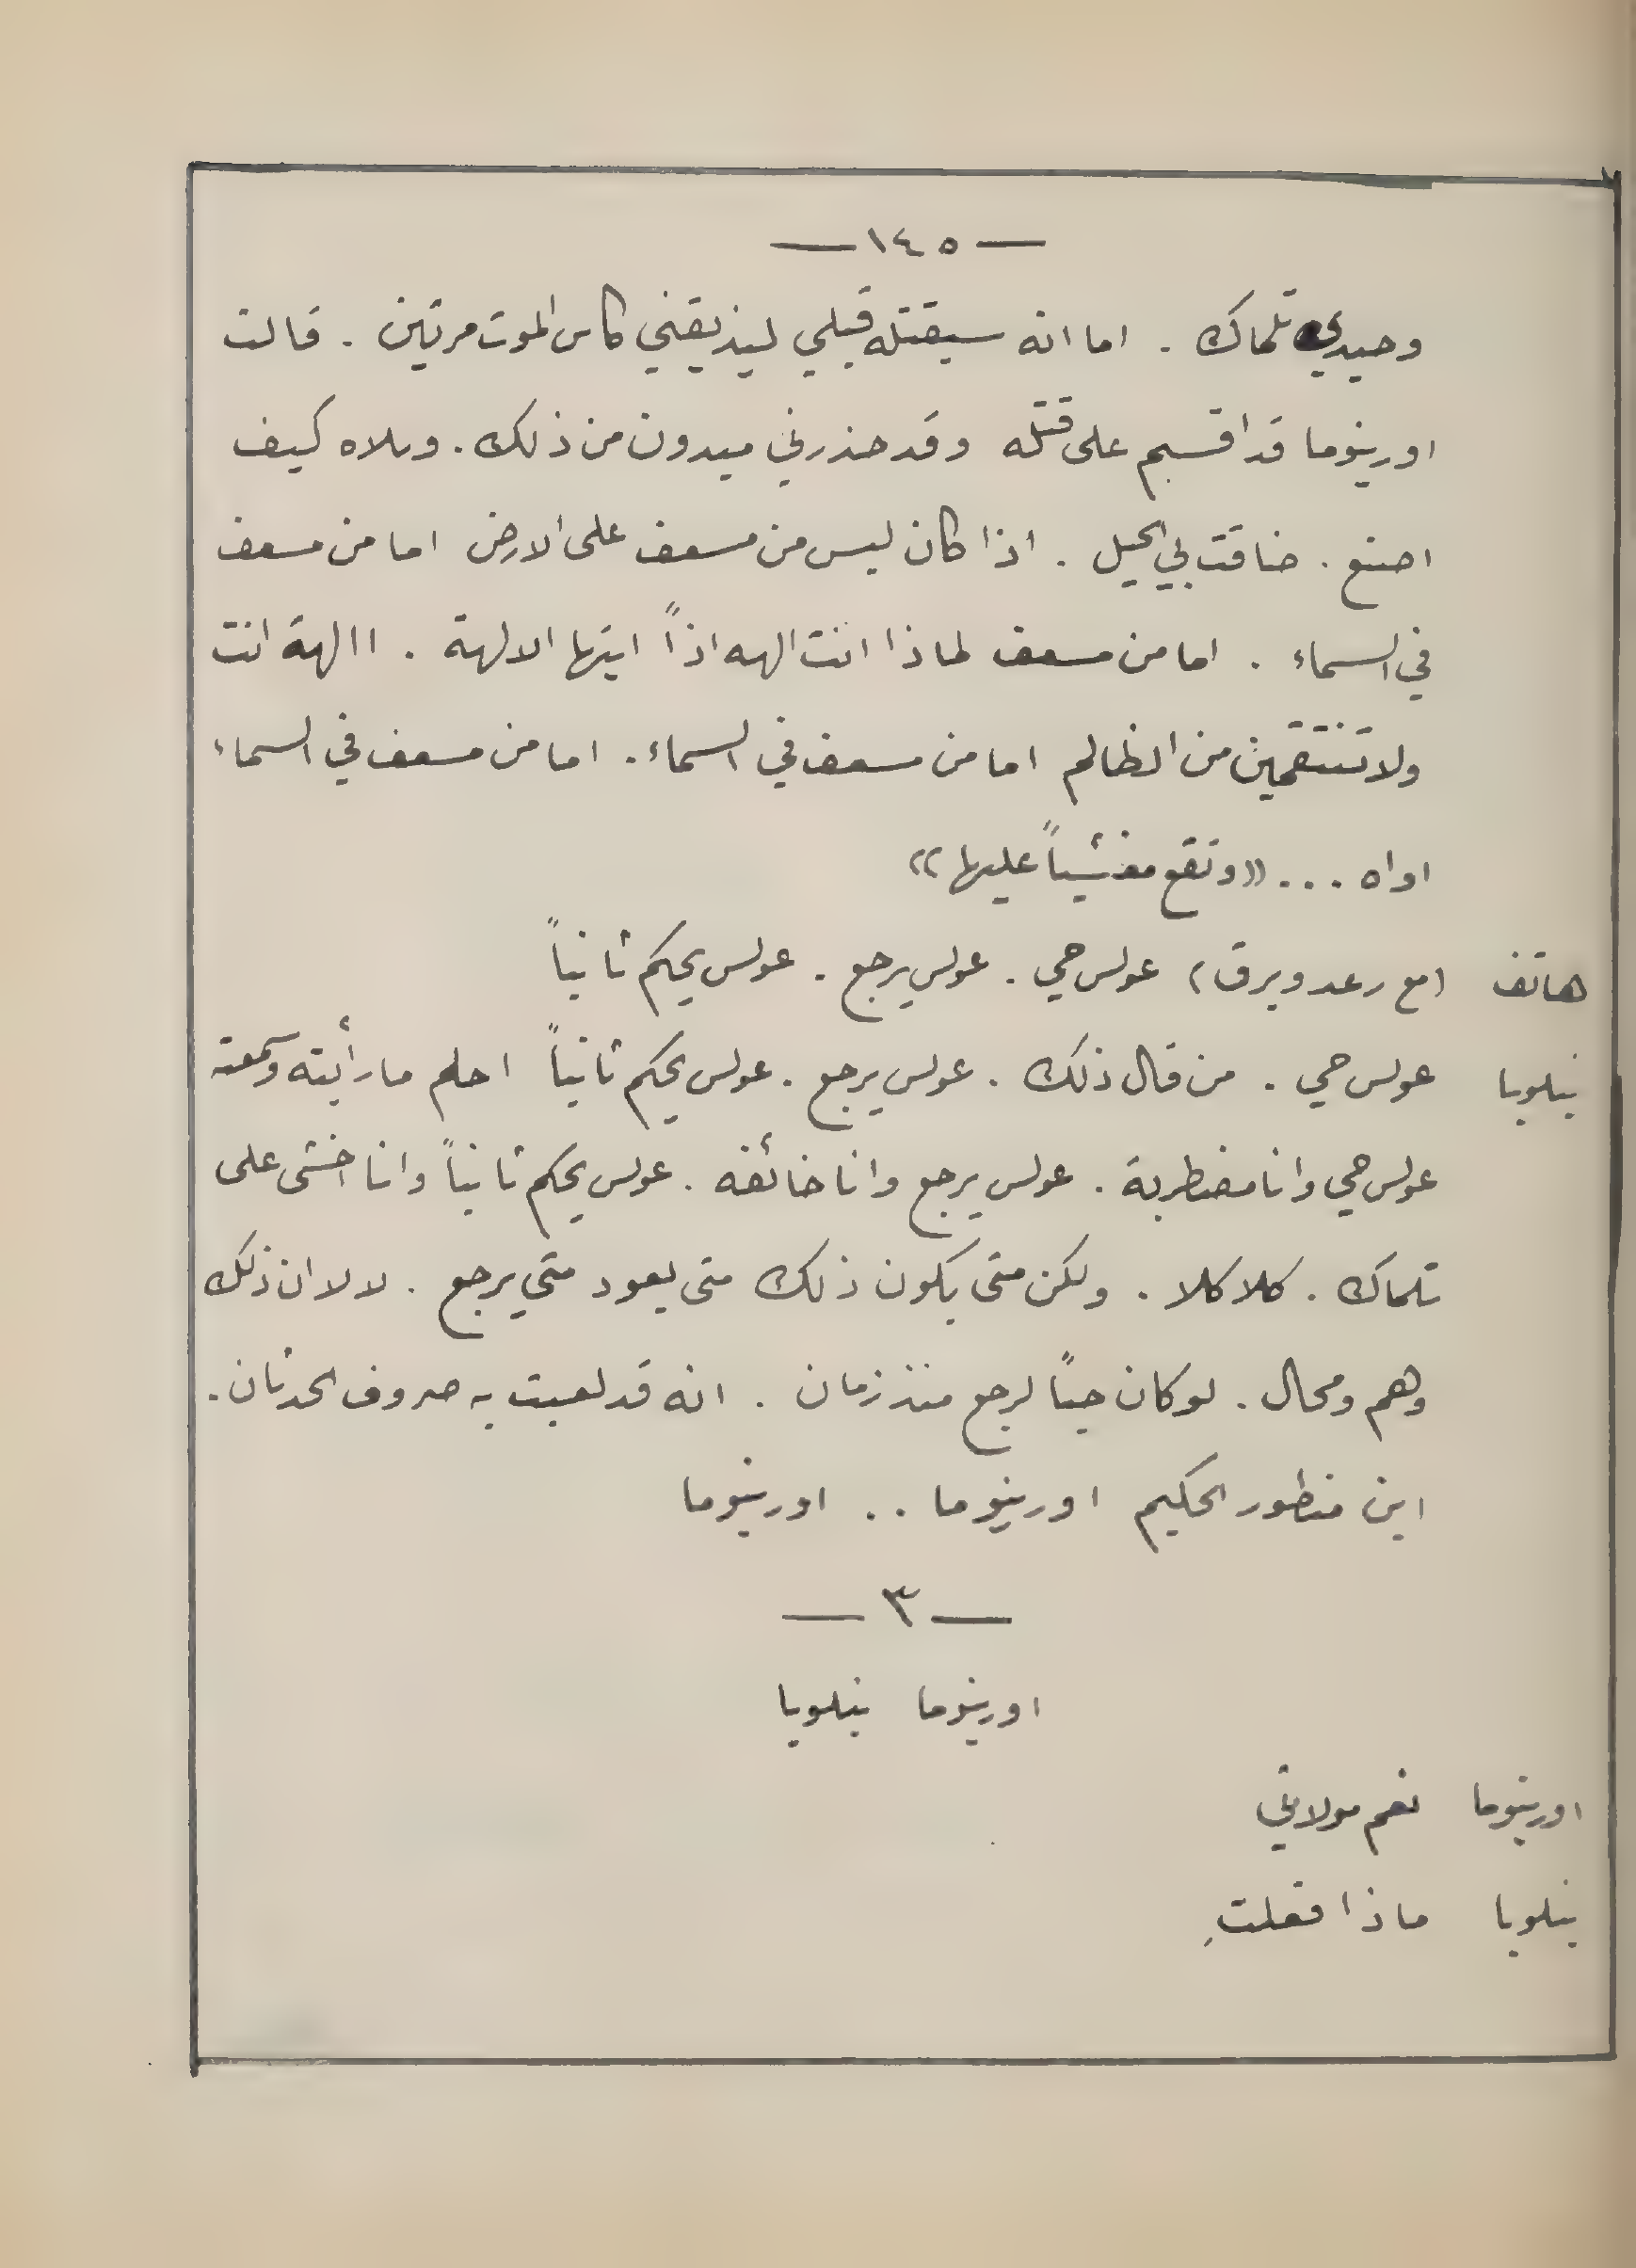 — ١٤٥ —
وحيدي تلماك . اما انه سيقتله قبلي ليذيقني كاس الموت مرتين . قالت
اورينوما قد اقسم على قتله وقد حذرني ميدون من ذلك . ويلاه كيف
اصنع . ضاقت بي الحيل . اذا كان ليس من مسعف على الارض اما من مسعف
في السماء . اما من مسعف لماذا انت الهه اذاً ايتها الالهة . االهة انت
ولا تنتقمين من الظالم اما من مسعف في السماء . اما من مسعف في السماء
اواه ... «وتقع مغشياً عليها»
هاتف (مع رعد وبرق) عولس حي . عولس يرجع . عولس يحكم ثانياً
بنلوبا عولس حي . من قال ذلك . عولس يرجع . عولس يحكم ثانياً احلم ما رأيته وسمعته
عولس حي وانا مضطربة . عولس يرجع وانا خائفه . عولس يحكم ثانياً وانا اخشى على
تلماك . كلا كلا . ولكن متى يكون ذلك متى يعود متى يرجع . لا لا ان ذلك
وهم ومحال . لو كان حياً لرجع منذ زمان . انه قد لعبت به صروف الحدثان .
اين منطور الحكيم اورينوما .. اورينوما
— ٣ —
اورينوما بنلوبا
اورينوما نعم مولاتي
بنلوبا ماذا فعلتِ